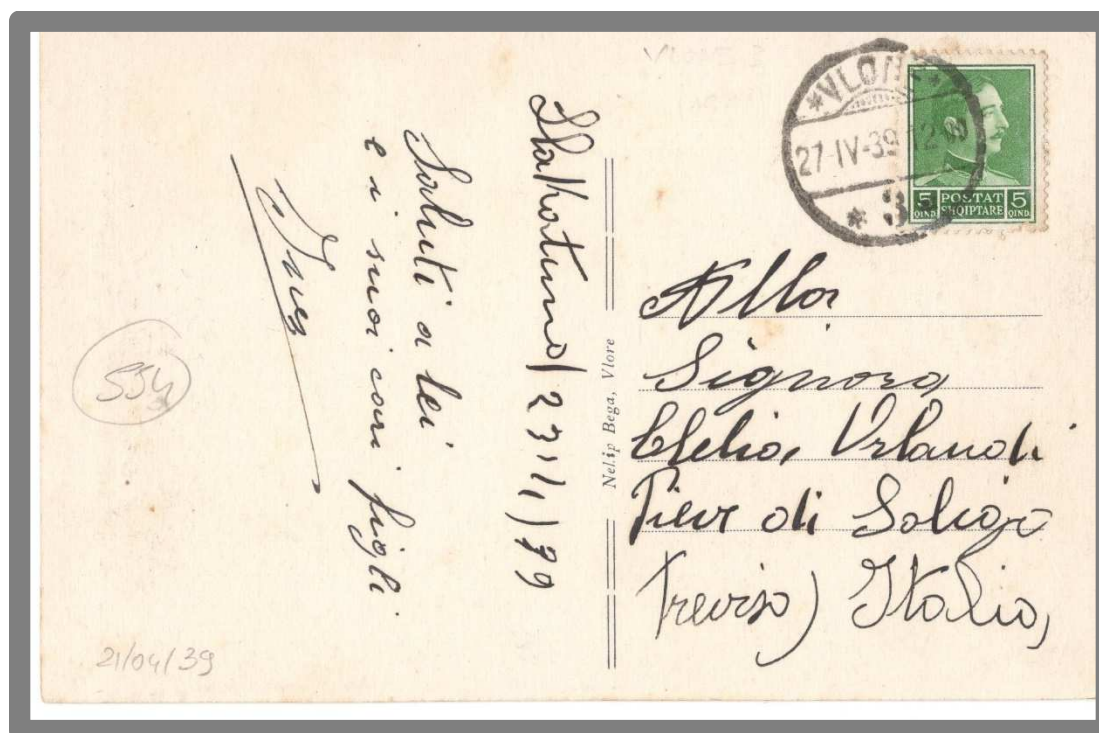 *VLONE*
27-IV-39 12-00
* 3 *
5 POSTAT 5
QIND. SHQIPTARE QIND.
Alla
Signora
Clelia Orlandi
Pieve di Soligo
Treviso) Italia,
Nel.ip Bega, Vlore
Saluti a lei
e i suoi cari figli
554
21/04/39